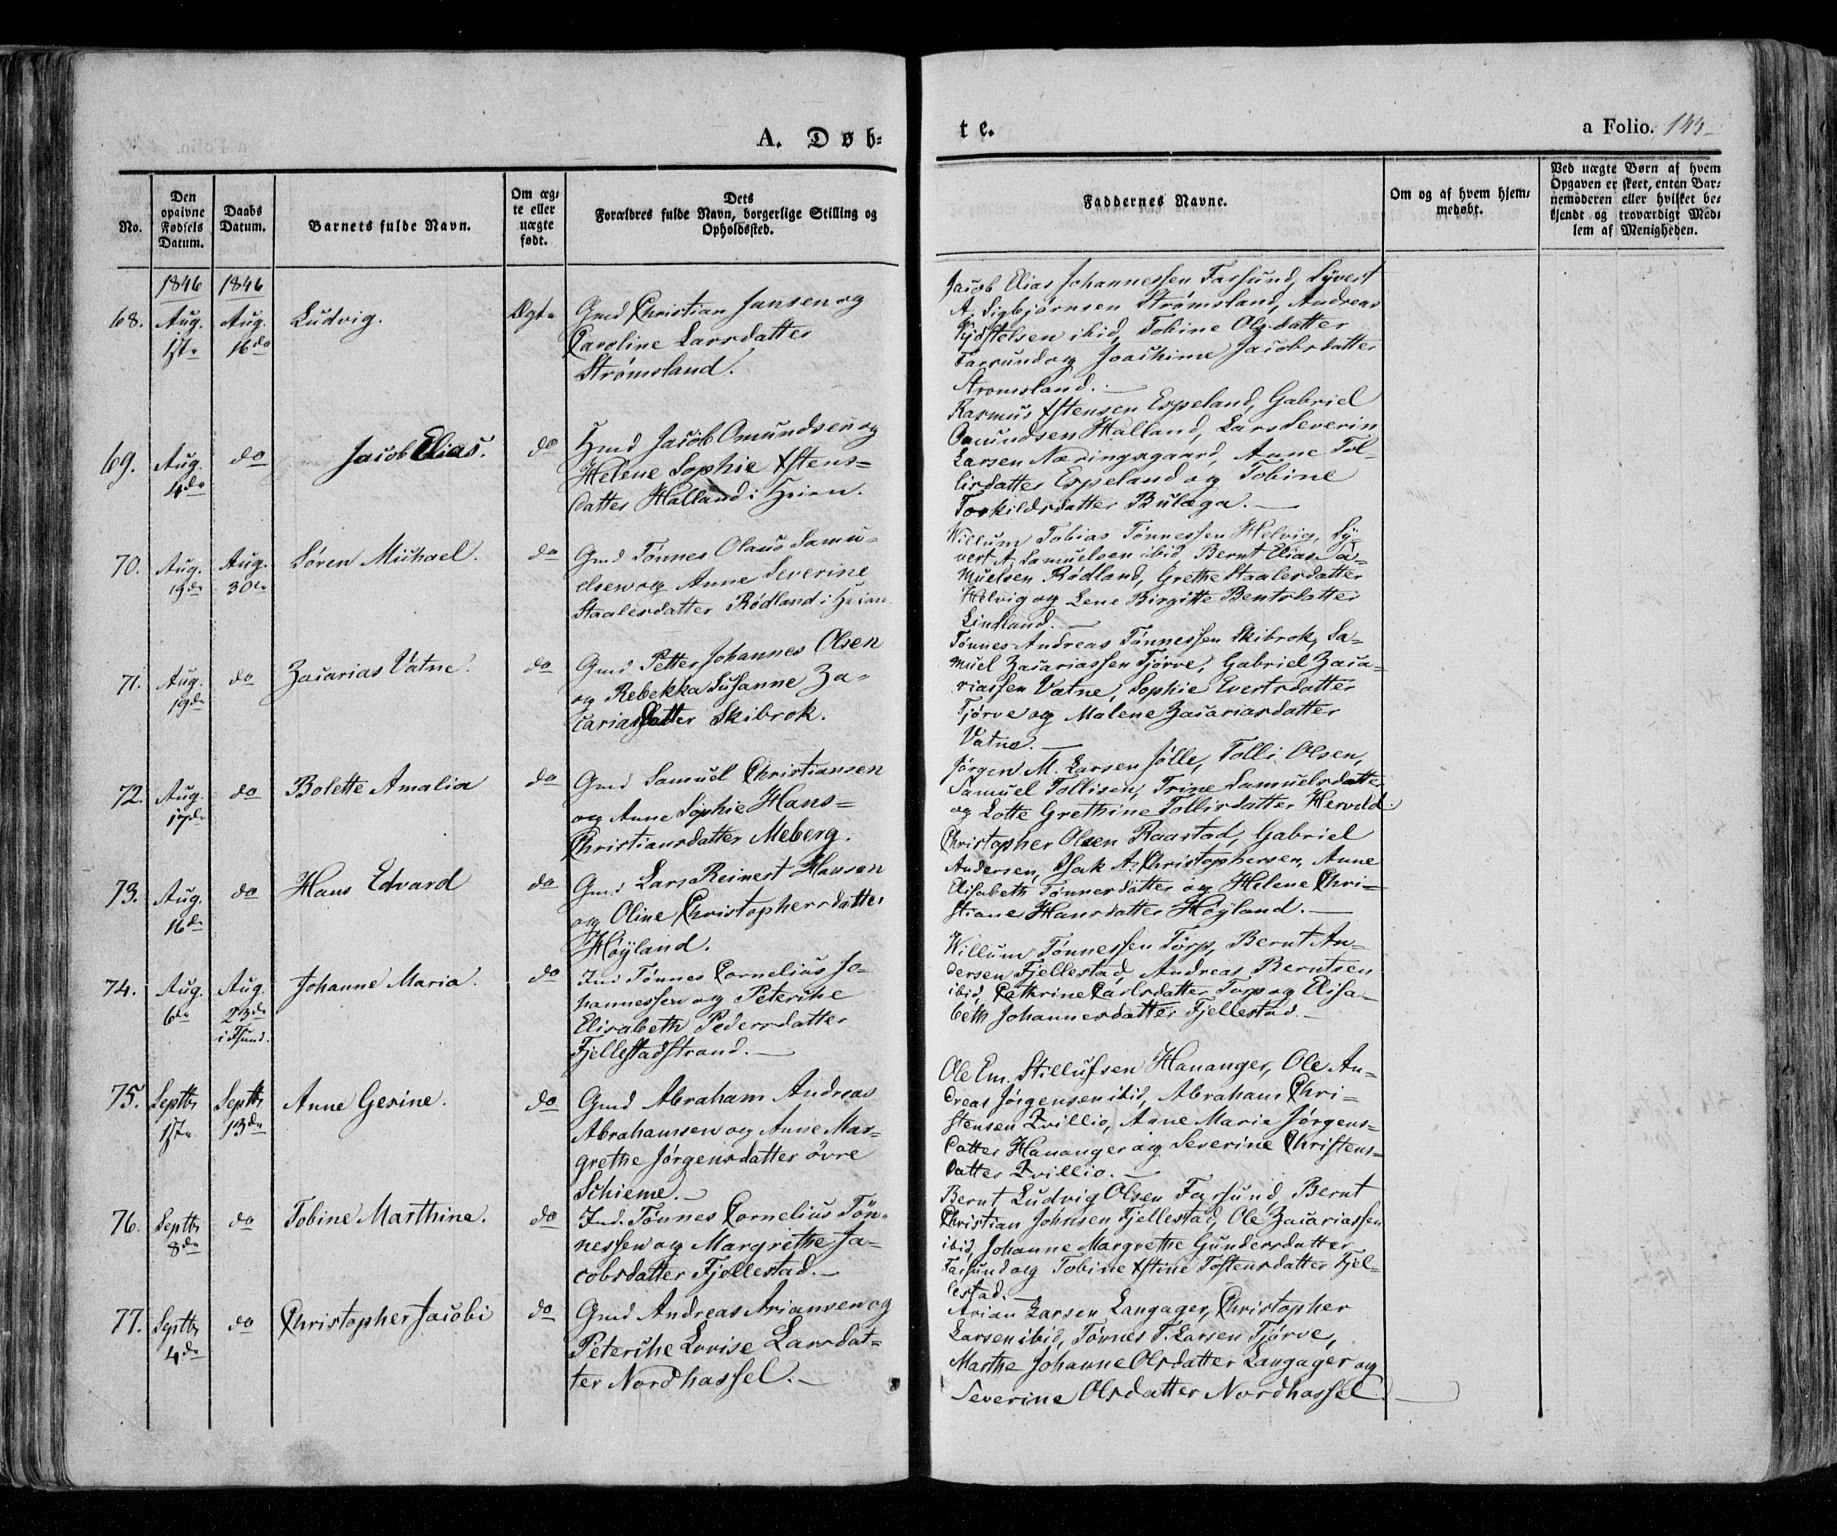 A. Døb-
te.
a Folio.
No.
Den opgivne Fødsels Datum.
Daabs Datum.
Barnets fulde Navn.
Om ægte eller uægte født.
Dets
Forældres fulde Navn, borgerlige Stilling og
Opholdssted.
Faddernes Navne.
Om og af hvem hjem-
medøbt.
Ved uægte Børn af hvem
Opgaven er skeet, enten Bar-
nemoderen eller hvilket be-
kjendt og troværdigt Med-
lem af Menigheden.
1846 1846
68. Aug. 1ste Aug. 16de Ludvig. Ægte
Gmd Christian Jansen og
Caroline Larsdatter
Strømsland.
Jacob Elias Johannessen Farsund, Syvert
A. Sigbjørnsen Strømsland, Andreas
ibid, Tobine Olsdatter
Farsund og Joachime Jacobsdatter
Strømsland.
69. Aug. 4de do Jacob Elias. do
Hmd Jacob Omundsen og
Helene Sophie Estens=
datter Halland i Heien.
Rasmus Estensen Espeland, Gabriel
Omundsen Halland, Lars Severin
Larsen Næringsgaard, Anne Tol-
lisdatter Espeland og Tobine
Torkildsdatter Bulæga.
70. Aug. 19de Aug. 30te Søren Michael. do
Gmd Tønnes Olaus Samu-
elsen og Anne Severine
Staalesdatter Rødland i Heien
Willum Tobias Tønnessen Helvig, Sy-
vert A. Samuelsen ibid, Bernt Elias Sa-
muelsen Rødland, Grethe Staalesdatter
Helvig og Lene Birgitte Bentsdatter
Lindland.
71. Aug. 19de do Zacarias Vatne. do
Gmd Petter Johannes Olsen
og Rebekka Susanne Za-
cariasdatter Skibrok.
Tønnes Andreas Tønnessen Skibrok, Sa-
muel Zacariassen Tjørve, Gabriel Zaca-
riassen Vatne, Sophie Evertsdatter
Tjørve og Malene Zacariasdatter
Vatne.
72. Aug. 17de do Bolette Amalia do
Gmd Samuel Christiansen
og Anne Sophie Hans=
Christiansdatter Meberg.
Jørgen M. Larsen Jølle, Tolli Olsen,
Samuel Tollisen, Trine Samuelsdatter
og Lotte Grethine Tollisdatter Hervold.
73. Aug. 16de do Hans Edvard do
Gmd Lars Reinert Hansen
og Oline Christophersdatter
Høyland.
Christopher Olsen Raastad, Gabriel
Andersen, Isak A. Christophersen, Anne
Elisabeth Tønnesdatter og Helene Chri-
stiane Hansdatter Høyland.
74. Aug. 6te Aug. 23de i Fsund. Johanne Maria. do
Ind Tønnes Cornelius Jo-
hannessen og Peteriche
Elisabeth Pedersdatter
Fjellestadstrand.
Willum Tønnessen Torp, Bernt An-
dersen Fjellestad, Andreas Berntsen
ibid, Cathrine Carlsdatter Torp og Elisa-
beth Johannesdatter Fjellestad.
75. Septbr 1ste Septbr 13de Anne Gesine. do
Gmd Abraham Andreas
Abrahamsen og Anne Mar-
grethe Jørgensdatter øvre
Schieme.
Ole Em. Stillufsen Hananger, Ole An-
dreas Jørgensen ibid, Abraham Chri-
stensen Qvillio, Anne Marie Jørgens-
datter Hananger og Severine Christens-
datter Qvillio.
76. Septbr 8de do Tobine Marthine. do
Ind. Tønnes Cornelius Tøn-
nessen og Margrethe Ja-
cobsdatter Fjellestad.
Bernt Ludvig Olsen Farsund, Bernt
Christian Johnsen Fjellestad, Ole Zacariassen
ibid, Johanne Margrethe Gundersdatter
Farsund og Tobine Estine Tostensdatter Fjel-
lestad.
77. Septbr 4de do Christopher Jacobi do
Gmd Andreas Ariansen og
Peteriche Lovise Larsdat-
ter Nordhassel.
Arian Larsen Langager, Christopher
Larsen ibid, Tønnes T. Larsen Tjørve,
Marthe Johanne Olsdatter Langager og
Severine Olsdatter Nordhassel.